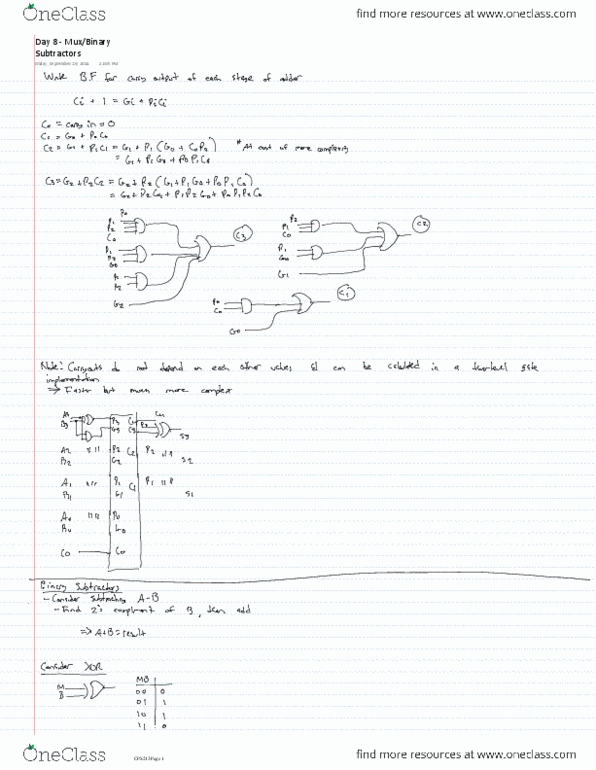 OneClass
find more resources at www.oneclass.com
Day 8 - Mux/Binary
Subtractors
Write B.F for carry output of each stage of adder
Ci + 1 = Gi + PiCi
C0 = carry in = 0
C1 = G0 + P0 C0
C2 = G1 + P1 C1 = G1 + P1 (G0 + C0P0) * At cost of more complexity
= G1 + P1 G0 + P0 P1 C0
C3 = G2 + P2 C2 = G2 + P2 (G1 + P1 G0 + P0 P1 C0)
= G2 + P2 G1 + P1 P2 G0 + P0 P1 P2 C0
P0
P1
P2
C0
C3
P1
P2
G0
P2
G2
P1
C0
C2
P1
G0
G1
P0
C0
C1
G0
Note: Carryouts do not depend on each other values, can be calculated in a two-level gate
implementation
=> Faster but much more complex
A3
B3
P3
G3
C3
P3
S3
A2
B2
P2
G2
C2
P2
S2
A1
B1
P1
G1
C1
P1
S1
A0
B0
P0
G0
C0
C0
Binary Subtractors
- Consider Subtracting A-B
- Find 2's complement of B, then add
=> A+B = result
Consider XOR
M
B
MB
00 0
01 1
10 1
11 0
OneClass
find more resources at www.oneclass.com